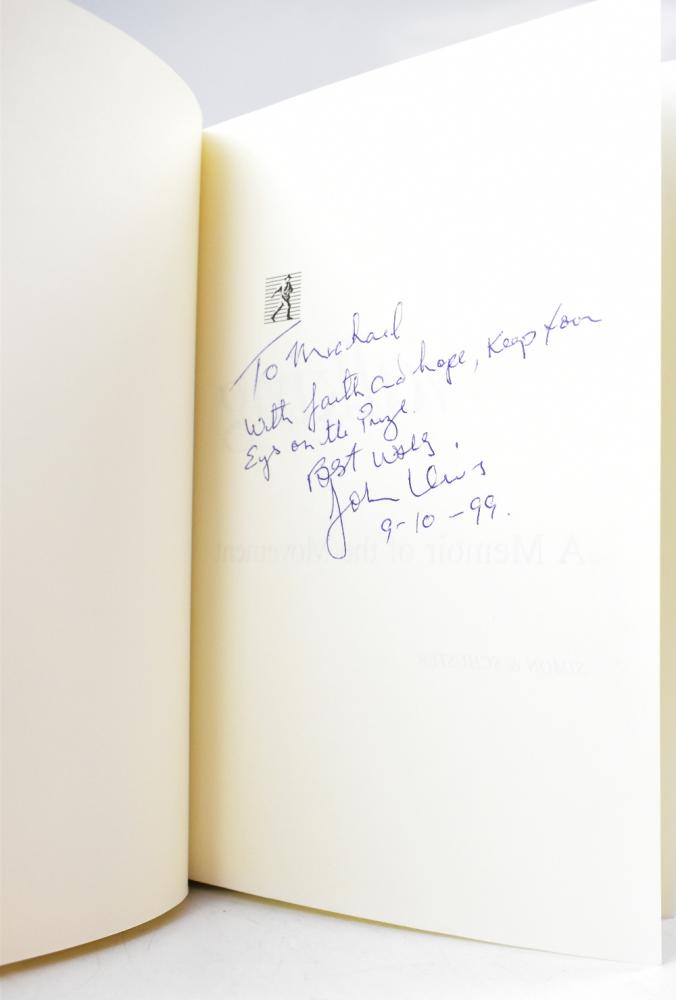 To Michael
With faith and hope, Keep Your
Eyes on the Prize.
Best wishes.
John Lewis
9-10-99.
A Memoir of the Movement
SIMON & SCHUSTER